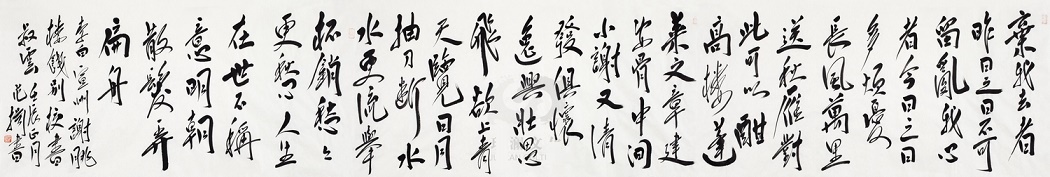 棄我去者
昨日之日不可
留亂我心
者今日之日
多煩憂
長風萬里
送秋雁對
此可以酣
高樓蓬
萊文章建
安骨中間
小謝又清
發俱懷
逸興壯思
飛欲上青
天覽日月
抽刀斷水
水更流舉
杯銷愁々
更愁人生
在世不稱
意明朝
散髮弄
扁舟
李白宣州謝朓
樓餞別校書
叔雲壬辰正月
范揚書